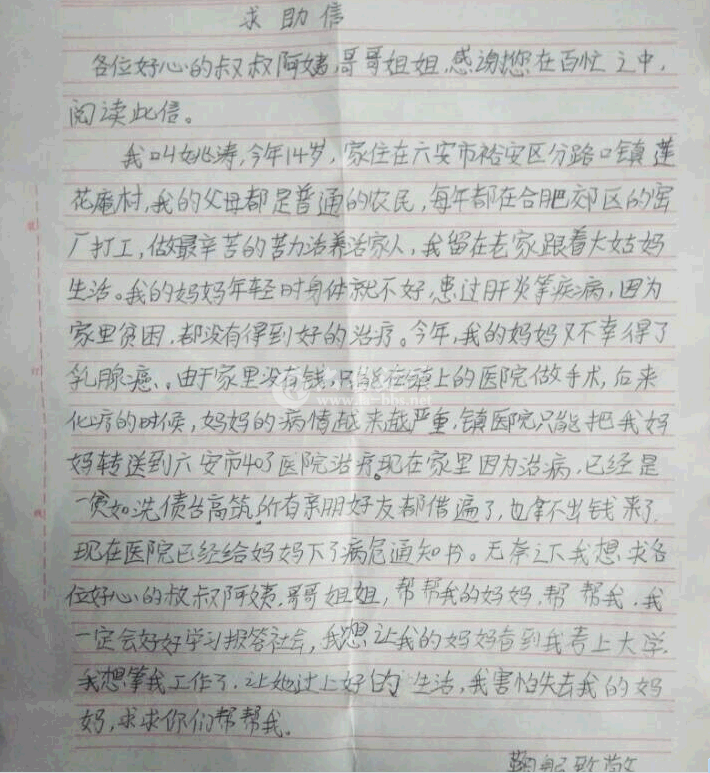 求助信
各位好心的叔叔阿姨,哥哥姐姐,感谢您在百忙之中,
阅读此信。
我叫姚涛,今年14岁,家住在六安市裕安区分路口镇莲
花庵村,我的父母都是普通的农民,每年都在合肥郊区的窑
厂打工,做最辛苦的苦力活养活家人,我留在老家跟着大姑妈
生活。我的妈妈年轻时身体就不好,患过肝炎等疾病,因为
家里贫困,都没有得到好的治疗。今年,我的妈妈又不幸得了
乳腺癌、由于家里没有钱,只能在镇上的医院做手术,后来
化疗的时候,妈妈的病情越来越严重,镇医院只能把我妈
妈转送到六安市403医院治疗。现在家里因为治病,已经是
一贫如洗债台高筑,所有亲朋好友都借遍了,也拿不出钱来了
现在医院已经给妈妈下了病危通知书。无奈之下我想求各
位好心的叔叔阿姨,哥哥姐姐,帮帮我的妈妈,帮帮我,我
一定会好好学习报答社会,我想让我的妈妈看到我考上大学,
我想等我工作了,让她过上好的生活,我害怕失去我的妈
妈,求求你们帮帮我。
鞠躬致敬